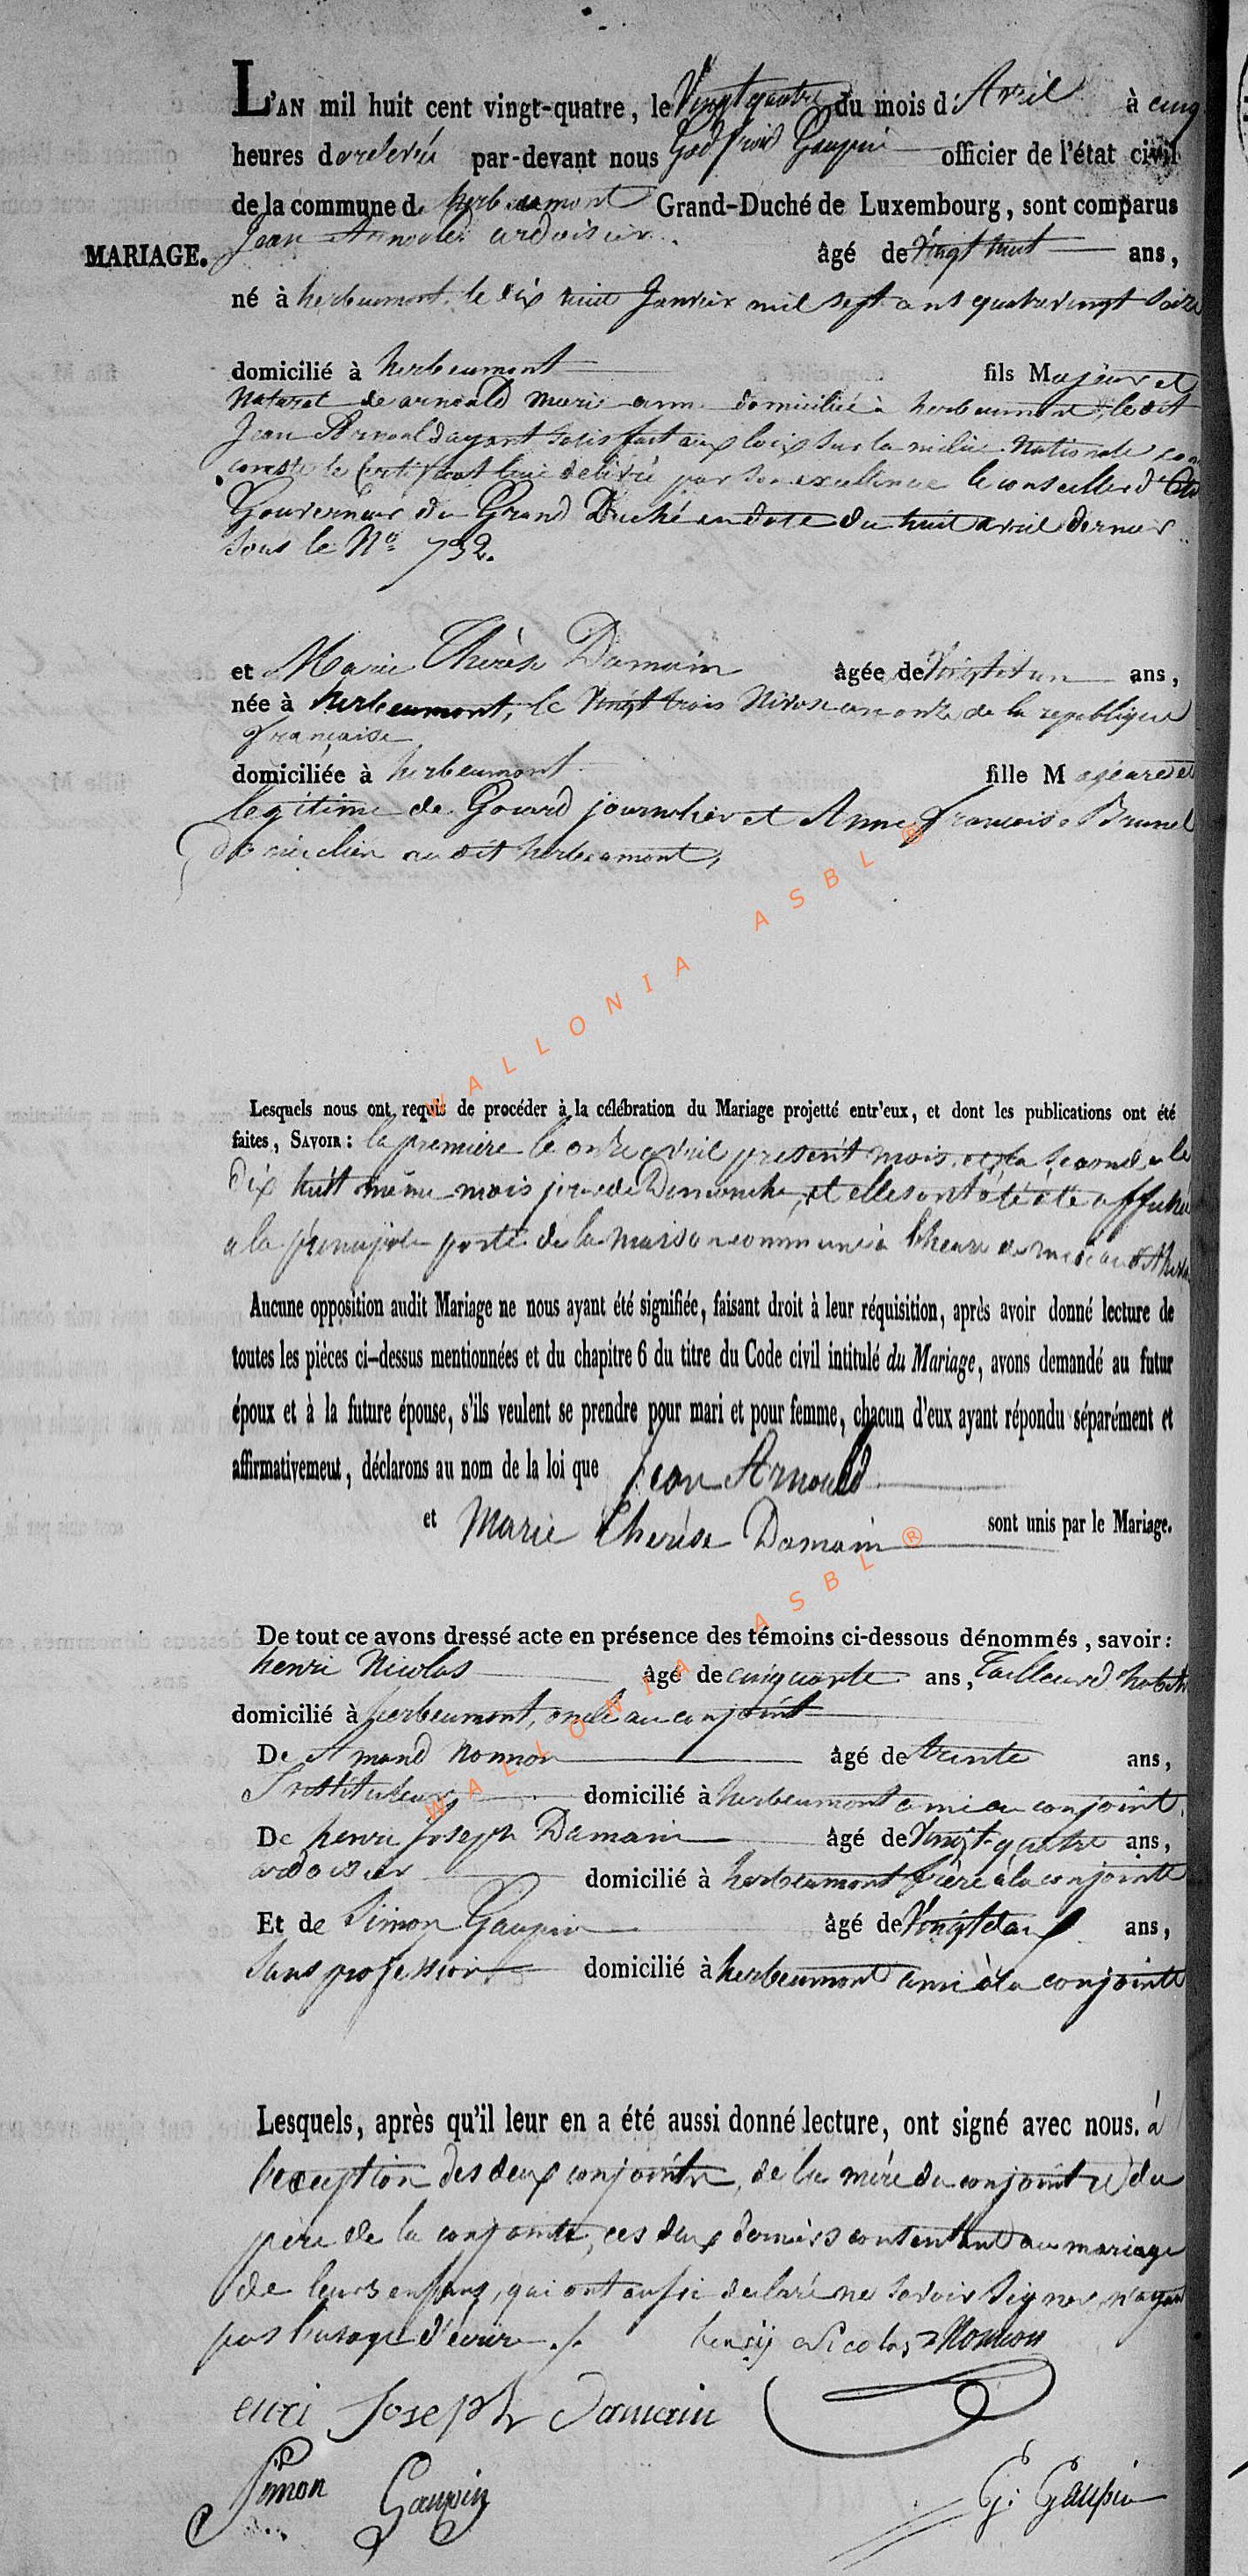 L'AN mil huit cent vingt-quatre, le Vingt quatre du mois d'Avril à cinq
heures de relevée par-devant nous Godfroid Gaupin officier de l'état civil
de la commune de herbeumont Grand-Duché de Luxembourg, sont comparus
MARIAGE.
Jean Arnould ardoisier âgé de Vingt huit ans,
né à herbeumont, le dix huit Janvier mil sept cent quatrevingt seize
domicilié à herbeumont fils Majeur et
Naturel de arnould Marie anne domiciliée à herbeumont, ledit
Jean Arnould ayant satisfait aux loix sur la milice Nationale
conste le Certificat lui délivré par son excellence le conseiller d'Etat
Gouverneur du Grand Duché en date du huit avril dernier
sous le No. 732.
et Marie Thérèse Damain âgée de Vingt et un ans,
née à herbeumont, le Vingt trois Nivose an onze de la republique
française
domiciliée à herbeumont fille Majeure et
legitime de Gerard journalier et Anne françoise Brunel
domicilier au dit herbeumont,
Lesquels nous ont requis de procéder à la célébration du Mariage projetté entr'eux, et dont les publications ont été
faites, SAVOIR : la premiere le onze avril présent mois, et la seconde le
dix huit même mois jour de Dimanche, et elles ont été affiché
a la principale porte de la maison commune à l'heure de midi audit
Aucune opposition audit Mariage ne nous ayant été signifiée, faisant droit à leur réquisition, après avoir donné lecture de
toutes les pièces ci-dessus mentionnées et du chapitre 6 du titre du Code civil intitulé du Mariage, avons demandé au futur
époux et à la future épouse, s'ils veulent se prendre pour mari et pour femme, chacun d'eux ayant répondu séparément et
affirmativement, déclarons au nom de la loi que Jean Arnould
et Marie Thérèse Damain sont unis par le Mariage.
De tout ce avons dressé acte en présence des témoins ci-dessous dénommés, savoir :
henri Nicolas âgé de cinquante ans, Tailleur d'habits
domicilié à herbeumont, oncle au conjoint
De Amand Nonnon âgé de trente ans,
Instituteur domicilié à herbeumont ami au conjoint,
De henri Joseph Damain âgé de Vingt-quatre ans,
ardoisier domicilié à herbeumont frère à la conjointe
Et de Simon Gaupin âgé de Vingt deux ans,
Sans profession domicilié à herbeumont ami à la conjointe
Lesquels, après qu'il leur en a été aussi donné lecture, ont signé avec nous. à
l'exception des deux conjoints, de la mère du conjoint et du
père de la conjointe, ces deux derniers consentant au mariage
de leurs enfans, qui ont aussi declaré ne savoir signer n'ayant
pas l'usage d'écrire ./.
henrÿ Nicolas Nonnon
enri Joseph Damain
Simon Gaupin
G: Gaupin
WALLONIA ASBL ®
WALLONIA ASBL ®